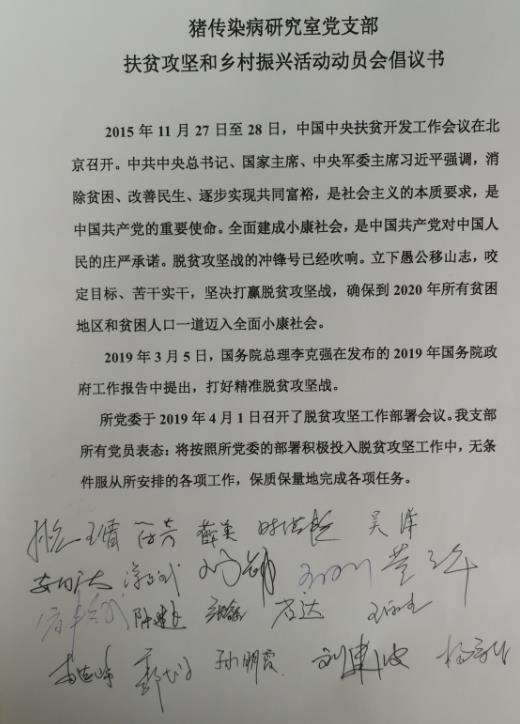 猪传染病研究室党支部
扶贫攻坚和乡村振兴活动动员会倡议书
2015 年 11 月 27 日至 28 日，中国中央扶贫开发工作会议在北
京召开。中共中央总书记、国家主席、中央军委主席习近平强调，消
除贫困、改善民生、逐步实现共同富裕，是社会主义的本质要求，是
中国共产党的重要使命。全面建成小康社会，是中国共产党对中国人
民的庄严承诺。脱贫攻坚战的冲锋号已经吹响。立下愚公移山志，咬
定目标、苦干实干，坚决打赢脱贫攻坚战，确保到 2020 年所有贫困
地区和贫困人口一道迈入全面小康社会。
2019 年 3 月 5 日，国务院总理李克强在发布的 2019 年国务院政
府工作报告中提出，打好精准脱贫攻坚战。
所党委于 2019 年 4 月 1 日召开了脱贫攻坚工作部署会议。我支部
所有党员表态：将按照所党委的部署积极投入脱贫攻坚工作中，无条
件服从所安排的各项工作，保质保量地完成各项任务。
王倩 薛美 吴洋
孙朋霞